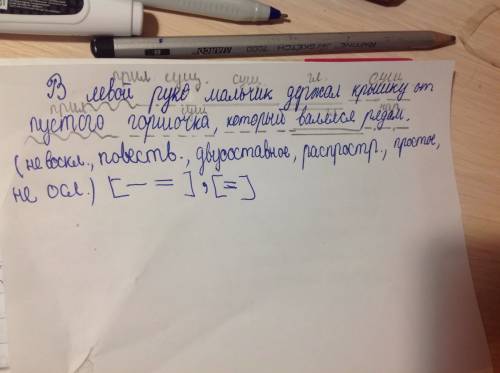 прил сущ. сущ гл. сущ
В левой руке мальчик держал крышку от
прил сущ гл. нар.
пустого горшочка, который валялся рядом.
(невоскл., повеств., двусоставное, распростр., простое,
не осл.) [— =], [=]